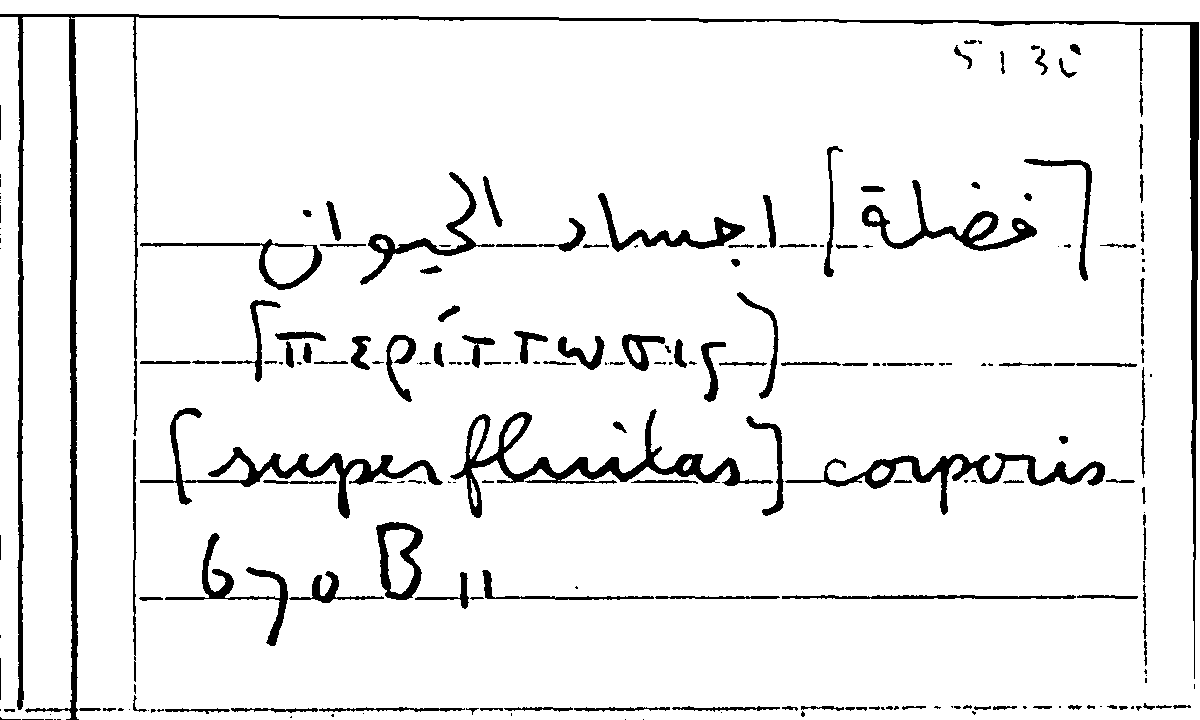 [فضلة] اجساد الحيوان
[περίττωσις]
[superfluitas] corporis
670 B 11